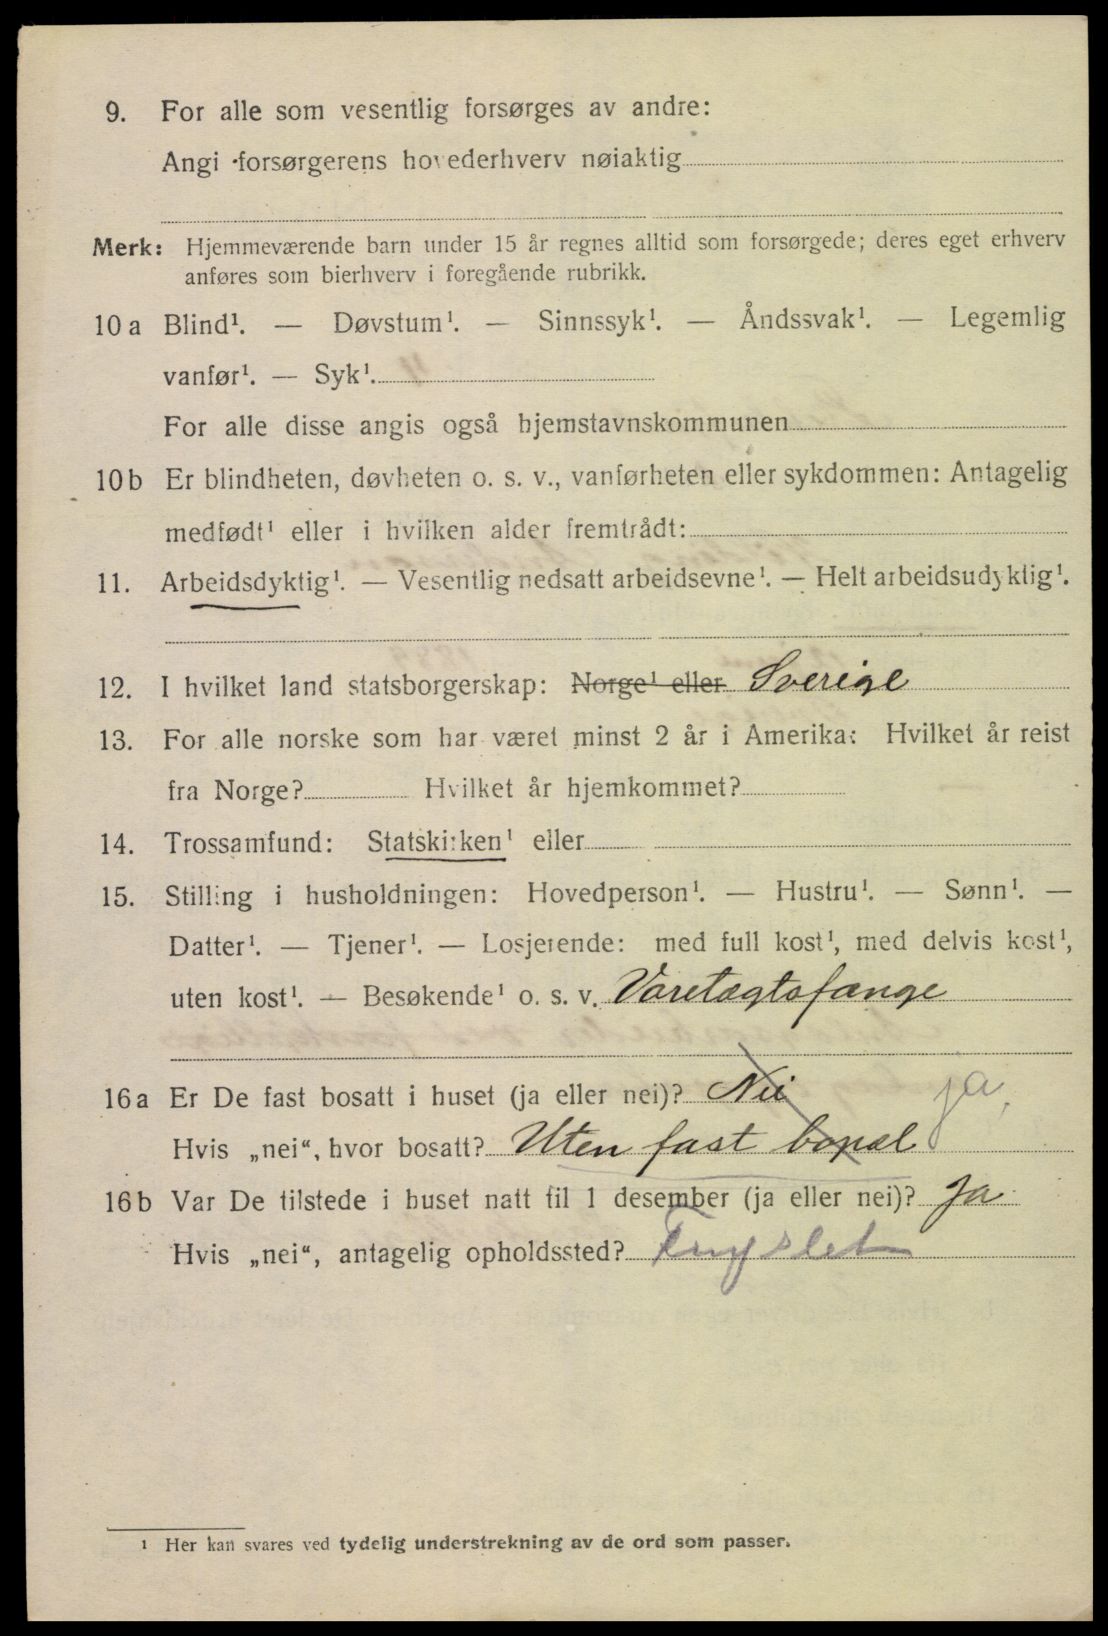 9. For alle som vesentlig forsørges av andre:
Angi forsørgerens hovederhverv nøiaktig
Merk: Hjemmeværende barn under 15 år regnes alltid som forsørgede; deres eget erhverv
anføres som bierhverv i foregående rubrikk.
10 a Blind¹. — Døvstum¹. — Sinnssyk¹. — Åndssvak¹. — Legemlig
vanfør¹. — Syk¹.
For alle disse angis også hjemstavnskommunen
10 b Er blindheten, døvheten o. s. v., vanførheten eller sykdommen: Antagelig
medfødt¹ eller i hvilken alder fremtrådt:
11. Arbeidsdyktig¹. — Vesentlig nedsatt arbeidsevne¹. — Helt arbeidsudyktig¹.
12. I hvilket land statsborgerskap: Norge¹ eller Sverige
13. For alle norske som har været minst 2 år i Amerika: Hvilket år reist
fra Norge? Hvilket år hjemkommet?
14. Trossamfund: Statskirken¹ eller
15. Stilling i husholdningen: Hovedperson¹. — Hustru¹. — Sønn¹. —
Datter¹. — Tjener¹. — Losjerende: med full kost¹, med delvis kost¹,
uten kost¹. — Besøkende¹ o. s. v. Varetægtsfange
16 a Er De fast bosatt i huset (ja eller nei)? Nei ja,
Hvis „nei“, hvor bosatt? Uten fast bopæl
16 b Var De tilstede i huset natt til 1 desember (ja eller nei)? Ja
Hvis „nei“, antagelig opholdssted?
¹ Her kan svares ved tydelig understrekning av de ord som passer.